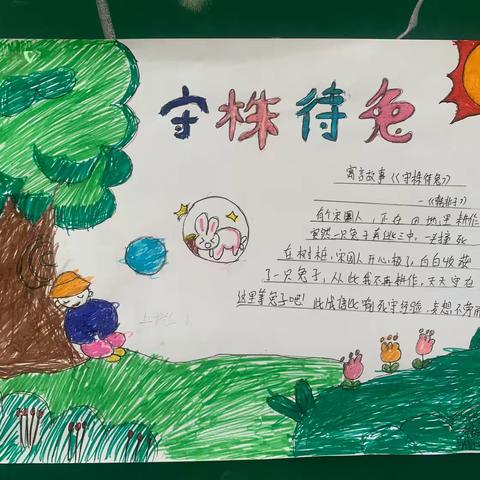 守株待兔
寓言故事《守株待兔》
—《韩非子》
有个宋国人，正在田地里耕作
突然一只兔子
在树桩，宋国人开心极了，白白收获
了一只兔子，从此我不再耕作，天天守在
这里等兔子吧！此成语比喻死守经验，妄想不劳而